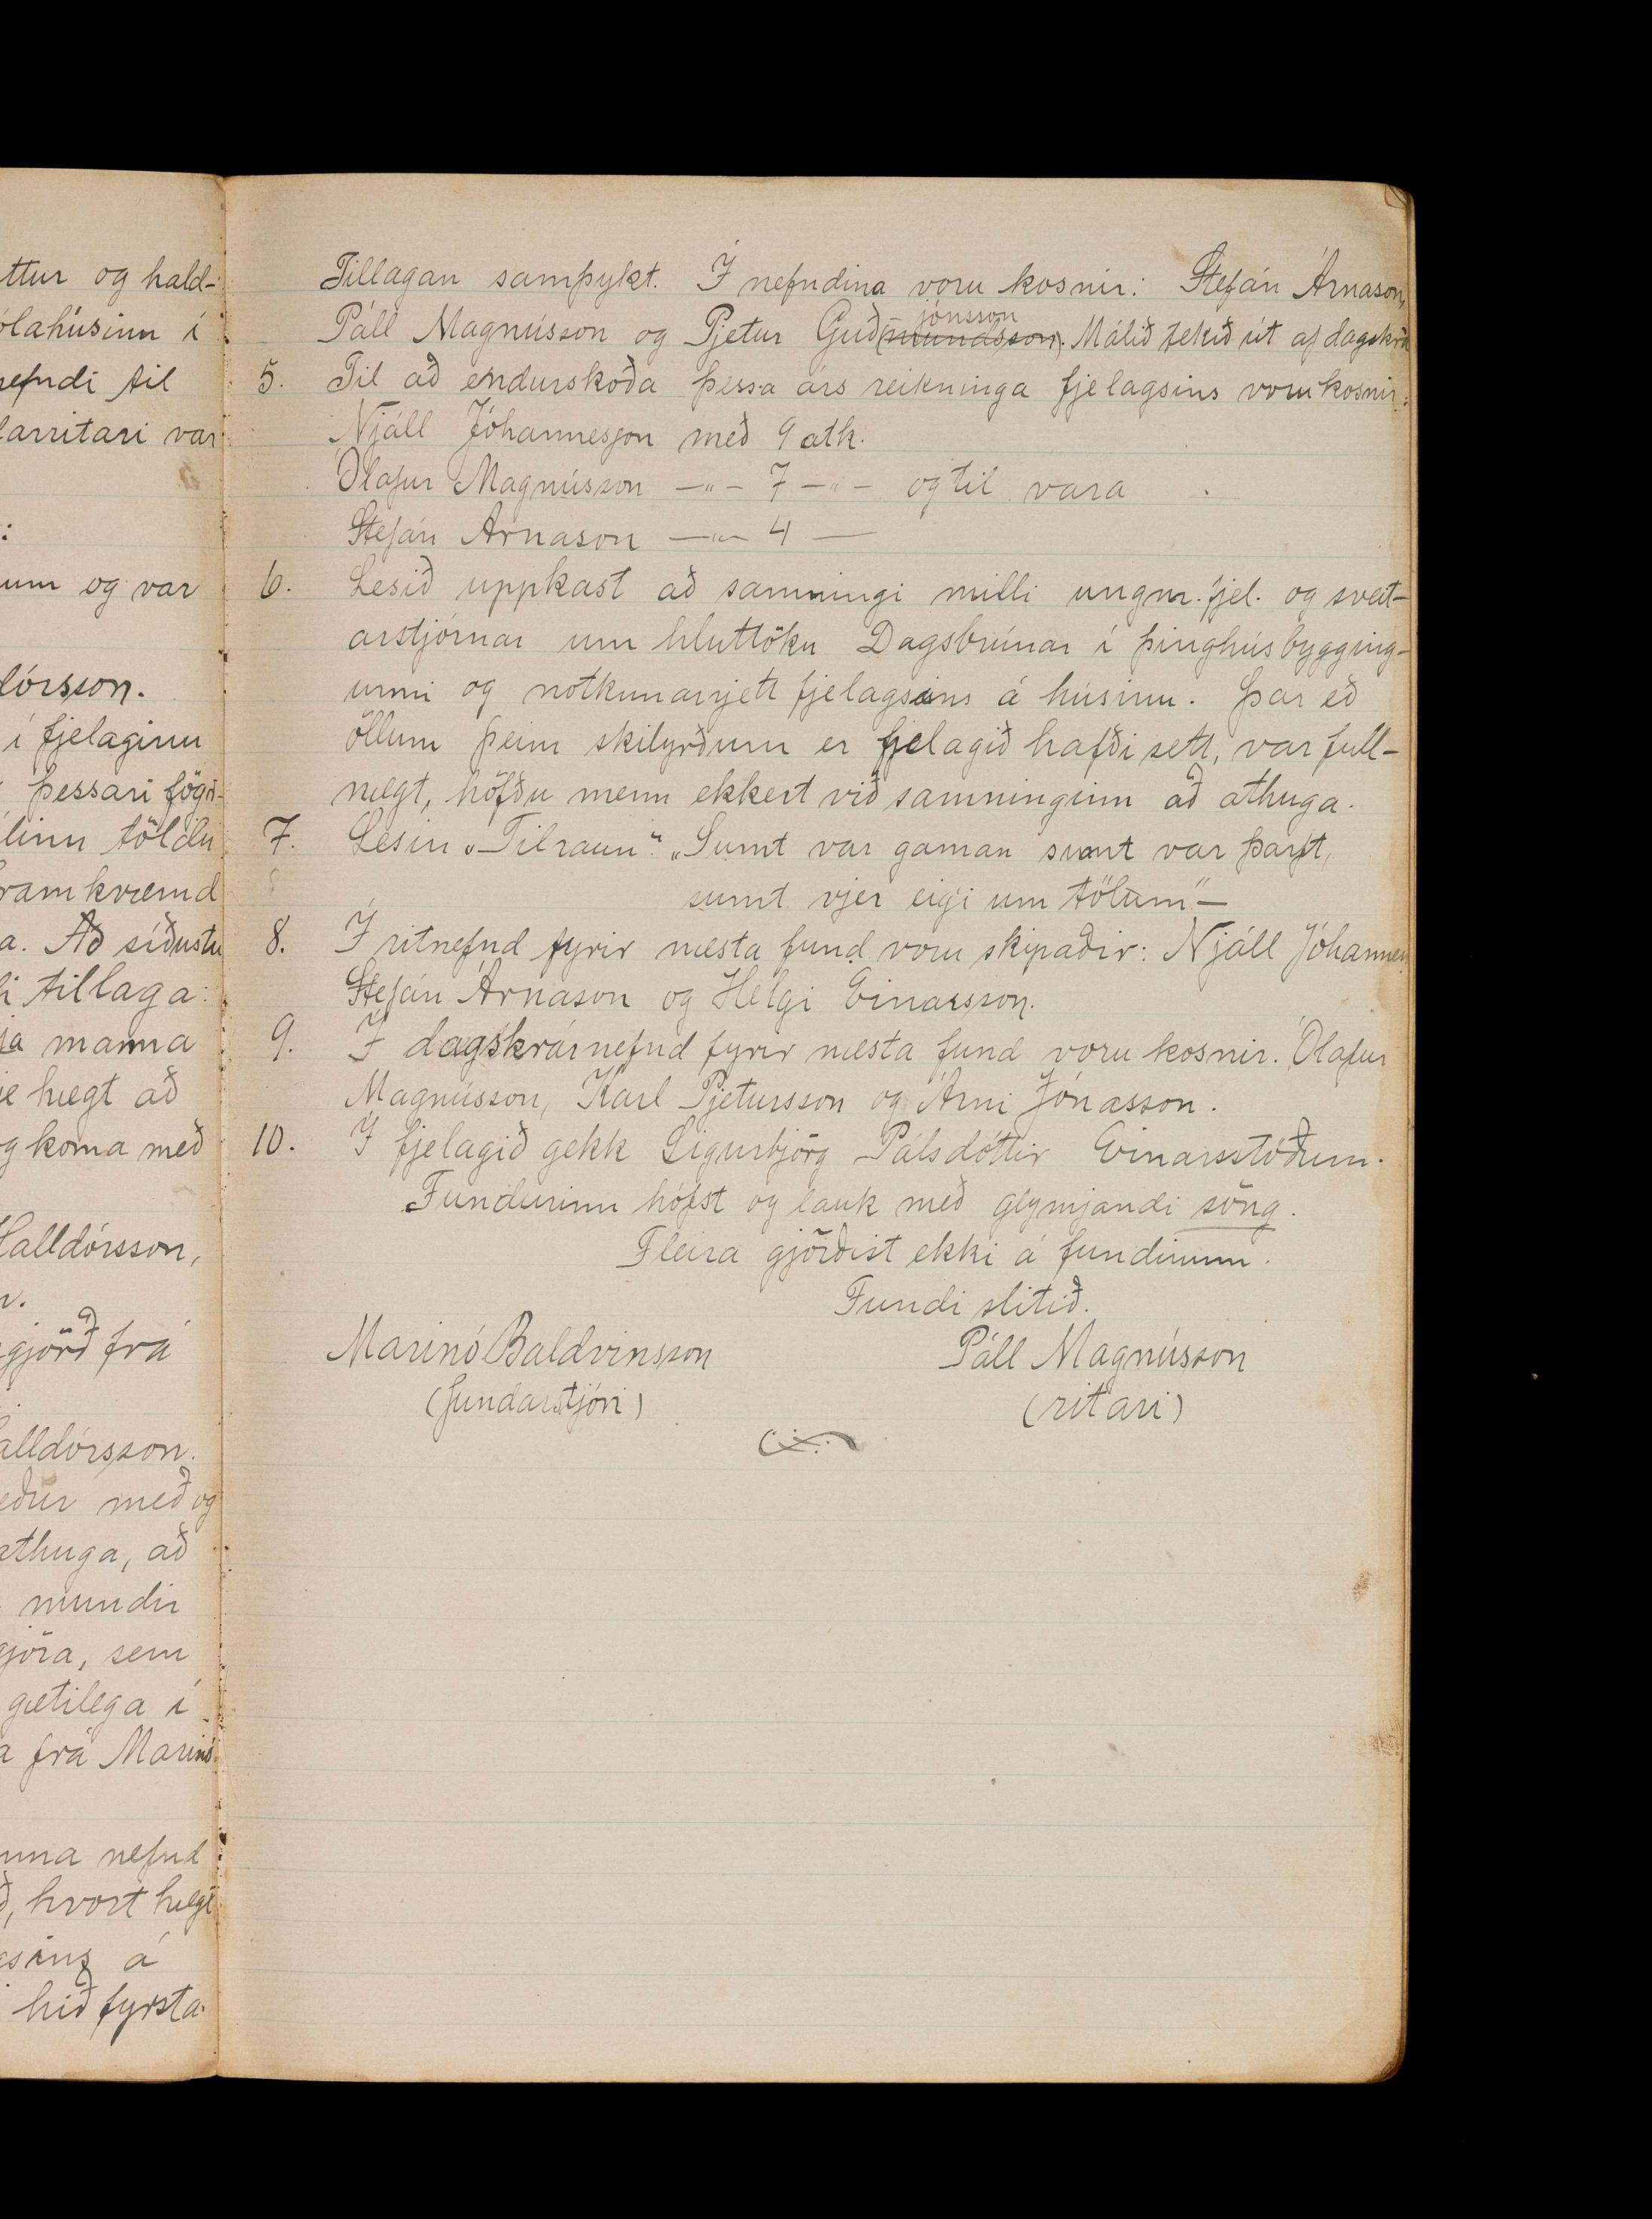 ttur og hald-
ólahúsinu í
nefndi til
larritari var
:
um og var
dórsson.
í fjelaginu
þessari fögr-
línu töldu
framkvæmd
a. Að síðustu
i tillaga:
ja manna
je hægt að
og koma með
Halldórsson,
r.
gjörð frá
alldórsson.
eður með og
athuga, að
mundir
gjöra, sem
gætilega í
a frá Marinó
nna nefnd
ð, hvort hægt
gsins á
hið fyrsta.
Tillagan samþykt. Í nefndina voru kosnir: Stefán Árnason,
Páll Magnússon og Pjetur Guð(mundsson). jónsson Málið tekið út af dagskrá
5. Til að endurskoða þessa árs reikninga fjelagsins voru kosnir:
Njáll Jóhannesson með 9 atk.
Ólafur Magnússon —„— 7 —„— og til vara
Stefán Árnason —„— 4 —
6. Lesið uppkast að samningi milli ungm.fjel. og sveit-
arstjórnar um hluttöku Dagsbrúnar í þinghúsbygging-
unni og notkunarrjett fjelagsins á húsinu. Þar eð
öllum þeim skilyrðum er fjelagið hafði sett, var full-
nægt, höfðu menn ekkert við samninginn að athuga.
7. Lesin „Tilraun“. „Sumt var gaman sumt var þarft,
sumt vjer eigi um tölum“—
8. Í ritnefnd fyrir næsta fund voru skipaðir: Njáll Jóhannes
Stefán Árnason og Helgi Einarsson.
9. Í dagskrárnefnd fyrir næsta fund voru kosnir. Ólafur
Magnússon, Karl Pjetursson og Árni Jónasson.
10. Í fjelagið gekk Sigurbjörg Pálsdóttir Einarsstöðum.
Fundurinn hófst og lauk með glymjandi söng.
Fleira gjörðist ekki á fundinum.
Fundi slitið.
Marinó Baldvinsson Páll Magnússon
(fundarstjóri) (ritari)